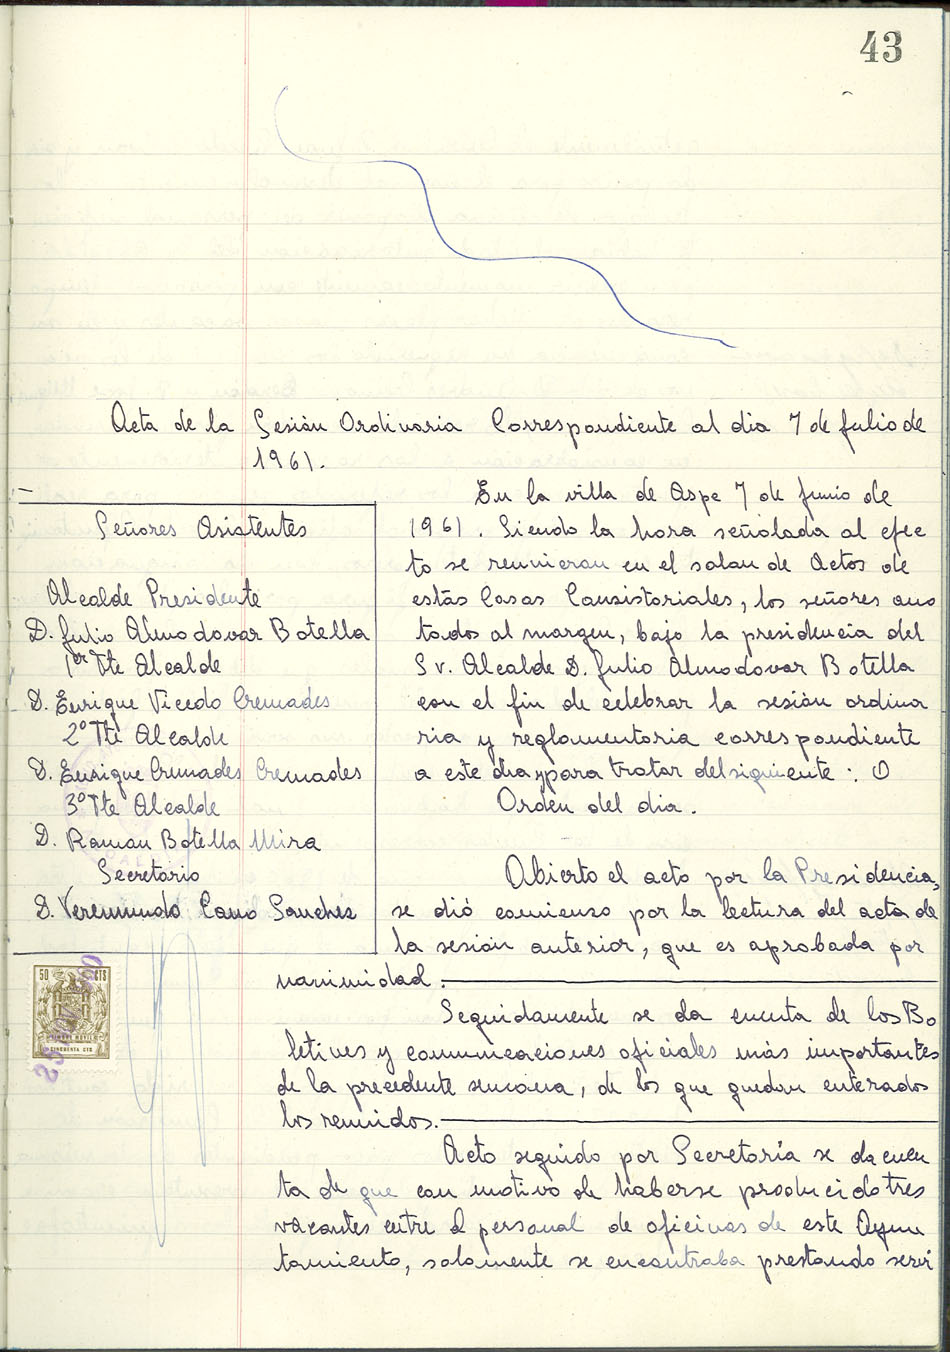 43
Acta de la Sesión Ordinaria Correspondiente al dia 7 de Julio de
1961.
Señores Asistentes
Alcalde Presidente
D. Julio Almodovar Botella
1er Tte Alcalde
D. Enrique Vicedo Cremades
2º Tte Alcalde
D. Enrique Cremades Cremades
3º Tte Alcalde
D. Ramon Botella Mira
Secretario
D. Veremundo Cano Sanchis
50 CTS
CINCUENTA CTS
En la villa de Aspe 7 de Junio de
1961. Siendo la hora señalada al efec
to se reunieran en el salan de Actos de
estás Casas Cansistoriales, los señores ano
tados al margen, bajo la presidencia del
Sr. Alcalde D. Julio Almodovar Botella
con el fin de celebrar la sesión ordina
ria y reglamentaria correspondiente
a este dia y para tratar del siguiente :
Orden del dia.
Abierto el acto por la Presidencia,
se dió comienzo por la lectura del acta de
la sesión anterior, que es aprobada por
nanimidad.
Seguidamente se da cuenta de los Bo
letines y comunicaciones oficiales más importantes
de la precedente semana, de los que quedan enterados
los reunidos.
Acto seguido por Secretaría se da cuen
ta de que con motivo de haberse producido tres
vacantes entre el personal de oficinas de este Ayun
tamiento, solamente se encontraba prestando servi